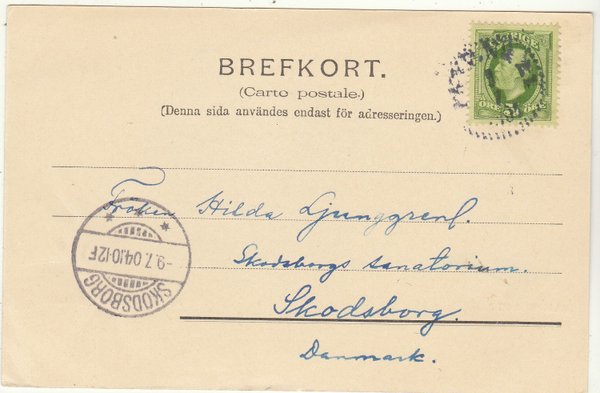 SVERIGE
5
ÖRE
BREFKORT.
(Carte postale.)
(Denna sida användes endast för adresseringen.)
Fröken Hilda Ljunggren.
Skodsborgs sanatorium.
Skodsborg.
Danmark.
-9.7.04.10-12F
SKODSBORG